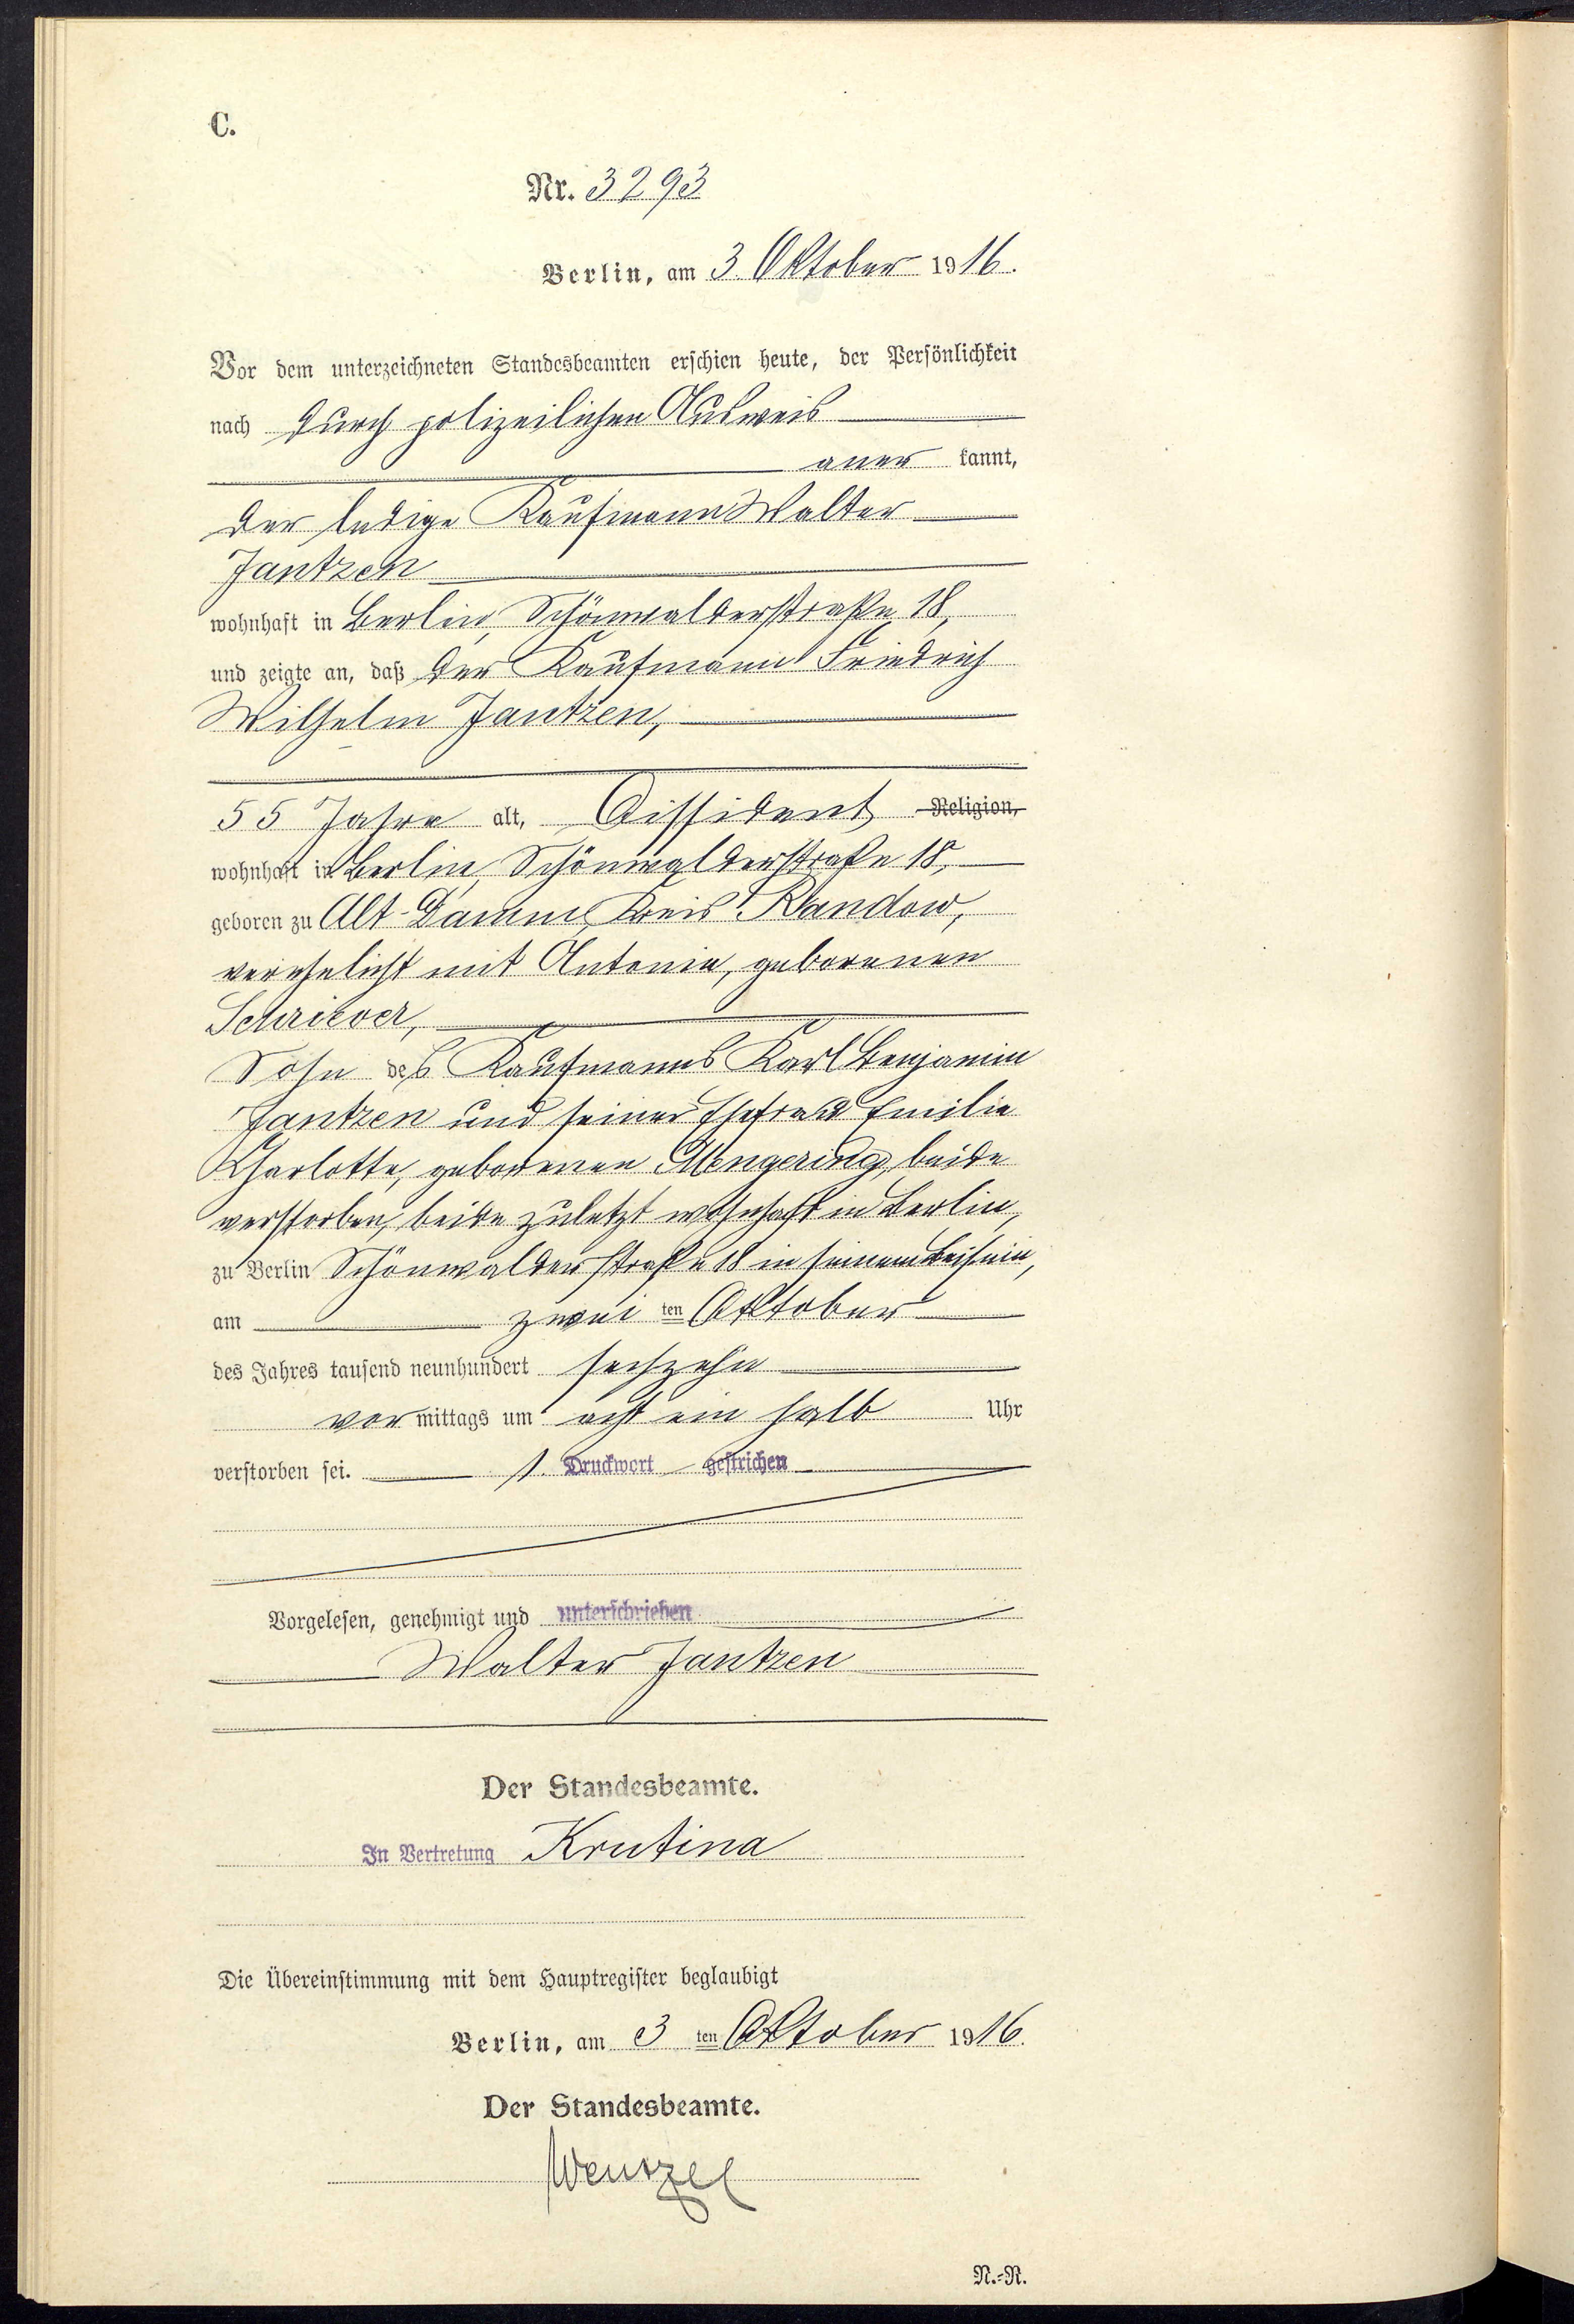 C.
Nr. 3293
Berlin, am 3. Oktober 1916.
Vor dem unterzeichneten Standesbeamten erschien heute, der Persönlichkeit
nach durch polizeilichen Ausweis
aner kannt,
der ledige Kaufmann Walter
Jantzen
wohnhaft in Berlin, Schönwalderstraße 18,
und zeigte an, daß der Kaufmann Friedrich
Wilhelm Jantzen,
55 Jahre alt, Dissident Religion,
wohnhaft in Berlin, Schönwalderstraße 18,
geboren zu Alt-Damm, Kreis Randow,
verehelicht mit Antonie, geborenen
Schriever,
Sohn des Kaufmanns Karl Benjamin
Jantzen und seiner Ehefrau Emilie
Charlotte, geborenen Mengering, beide
verstorben, beide zuletzt wohnhaft in Berlin,
zu Berlin Schönwalderstraße 18 in seinem Beisein,
am zwei ten Oktober
des Jahres tausend neunhundert sechzehn
vor mittags um acht ein halb Uhr
verstorben sei. 1. Druckwort gestrichen
Vorgelesen, genehmigt und unterschrieben
Walter Jantzen
Der Standesbeamte.
In Vertretung Krutina
Die Übereinstimmung mit dem Hauptregister beglaubigt
Berlin, am 3 ten Oktober 1916.
Der Standesbeamte.
Wentzel
N.-R.